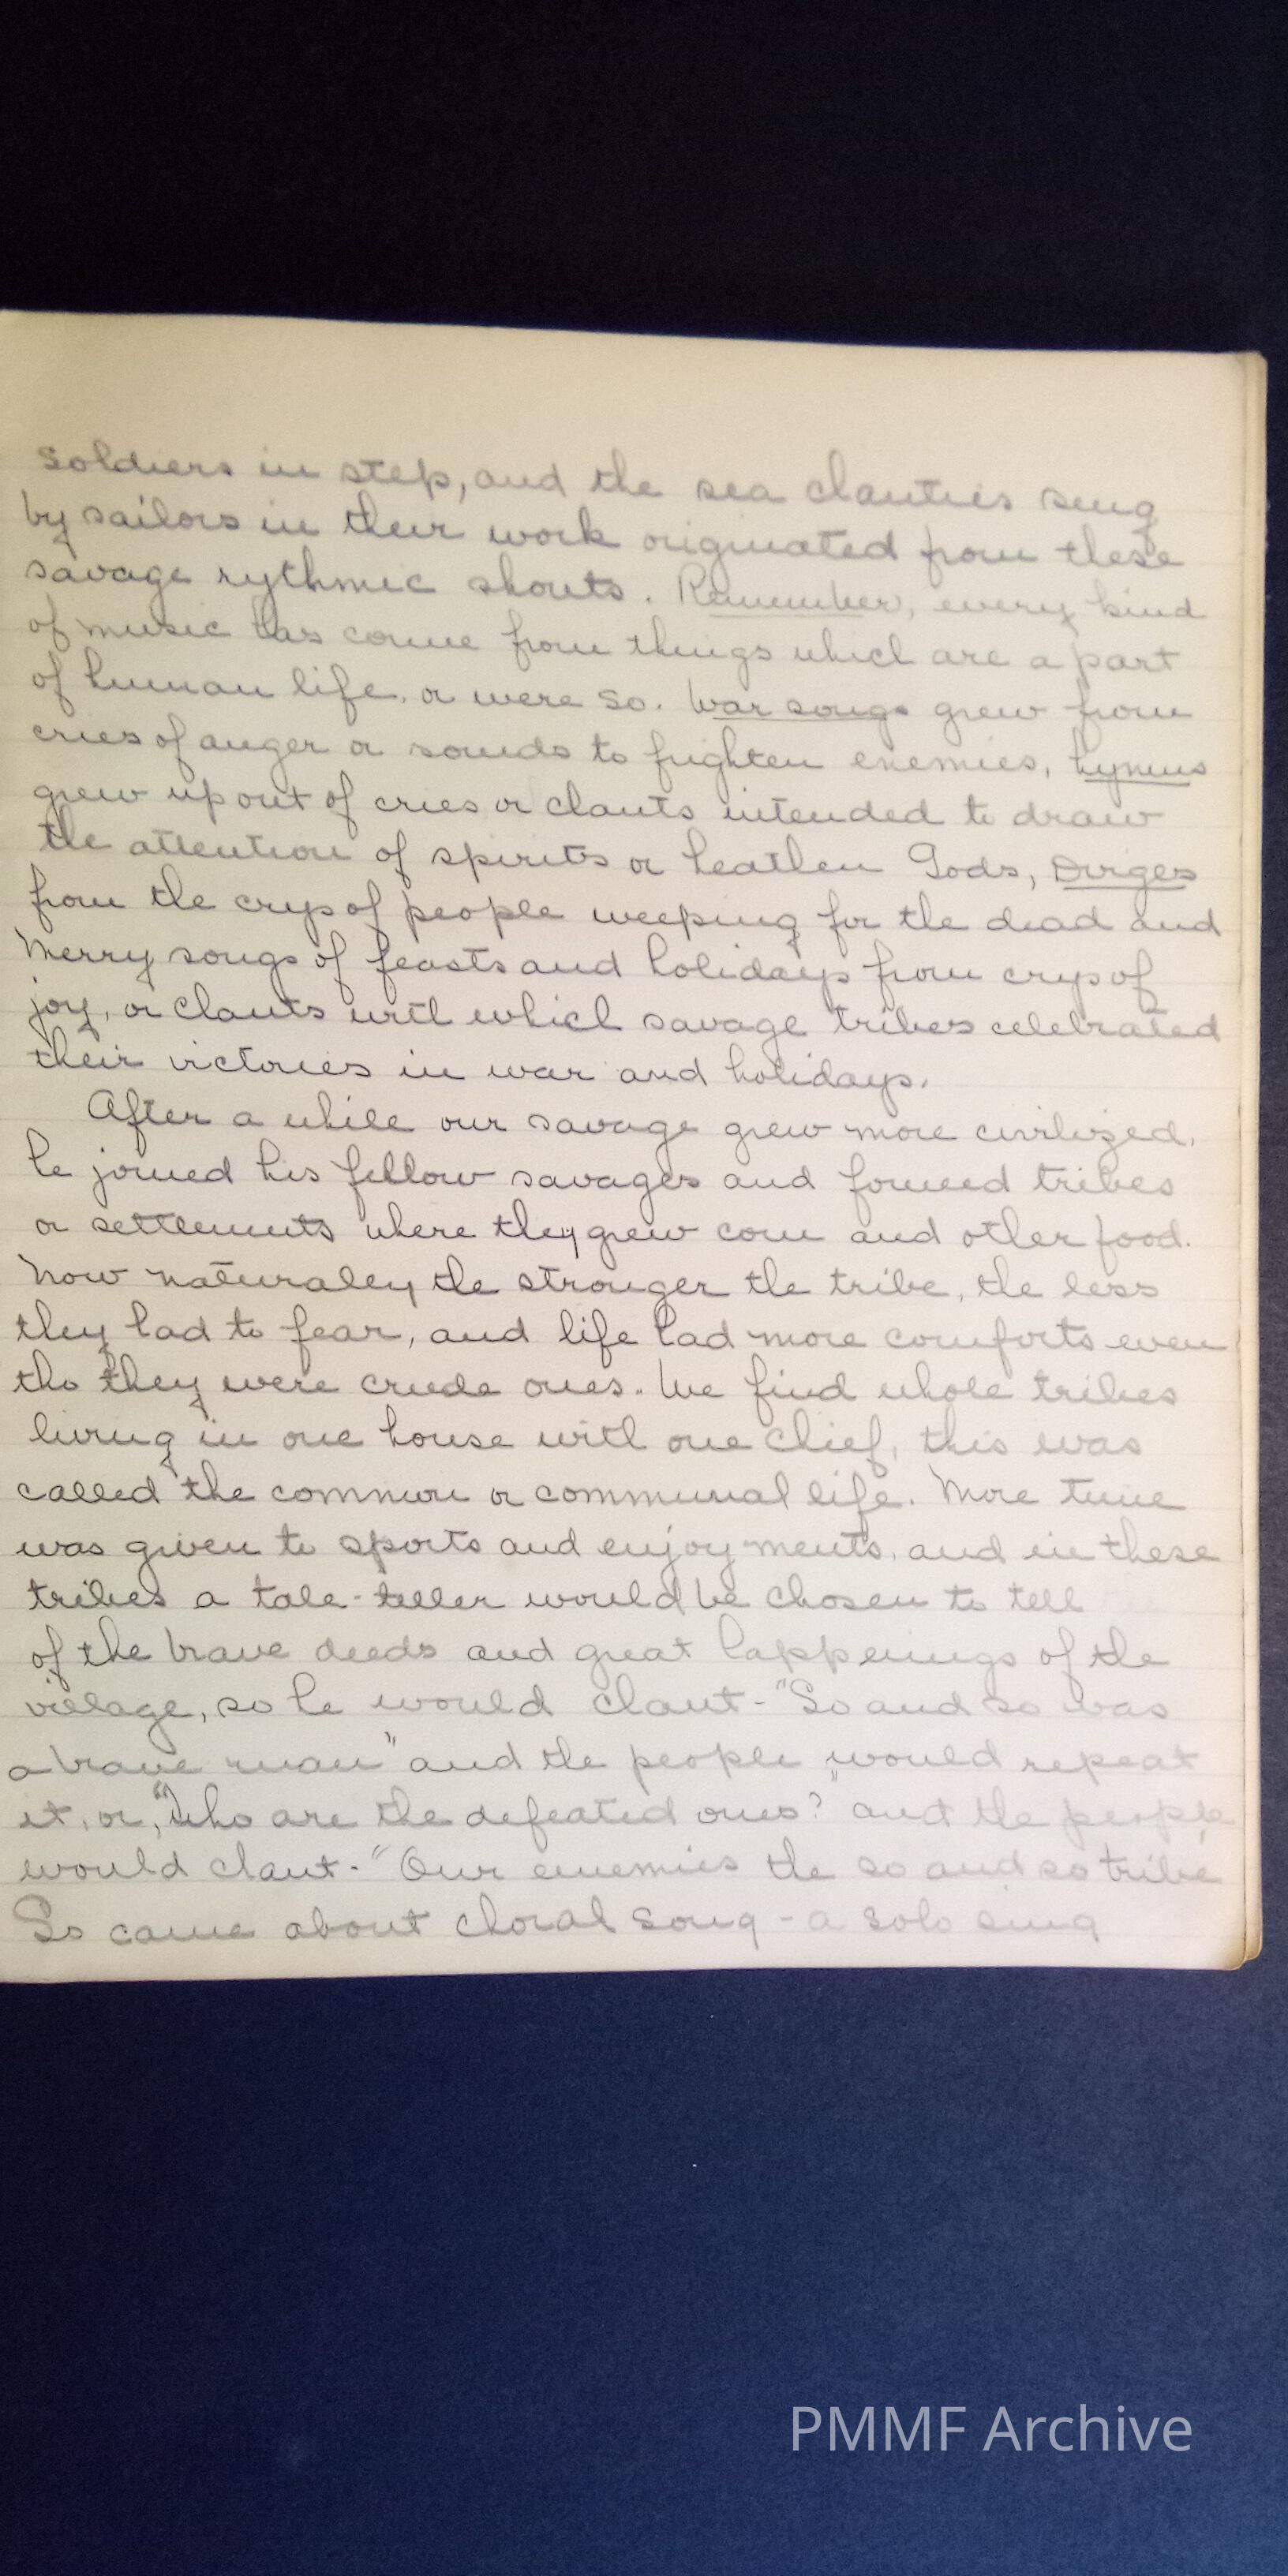 soldiers in step, and the sea chanties sung
by sailors in their work originated from these
savage rythmic shouts. Remember, every kind
of music has come from things which are a part
of human life, or were so. War songs grew from
cries of anger or sounds to frighten enemies, hymns
grew up out of cries or chants intended to draw
the attention of spirits or heathen Gods, Dirges
from the crys of people weeping for the dead and
Merry songs of feasts and holidays from crys of
joy, or chants with which savage tribes celebrated
their victories in war and holidays.
After a while our savage grew more civilized,
he joined his fellow savages and formed tribes
or settlements where they grew corn and other food.
Now naturaley the stronger the tribe, the less
they had to fear, and life had more comforts even
tho they were crude ones. We find whole tribes
living in one house with one chief, this was
called the common or communal life. More time
was given to sports and enjoyments, and in these
tribes a tale-teller would be chosen to tell
of the brave deeds and great happenings of the
village, so he would chant - "So and so was
a brave man" and the people would repeat
it, or, "Who are the defeated ones?" and the people
would chant - "Our enemies the so and so tribe
So came about choral song - a solo sung
PMMF Archive